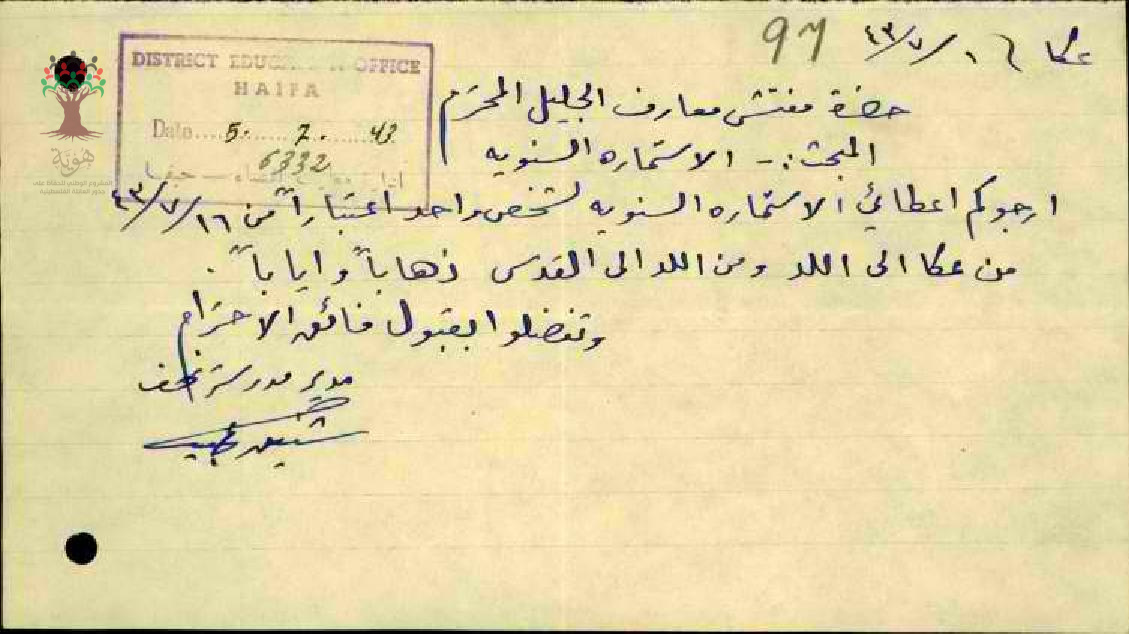 عكا في ١/٧/٤٣
97
DISTRICT EDUCATION OFFICE
HAIFA
Date..... 5. 7. 43
6332
حضرة مفتش معارف الجليل المحترم
المبحث :- الاستماره السنويه
ارجوكم اعطائي الاستماره السنويه لشخص واحد اعتباراً من ١٦/٧/٤٣
من عكا الى اللد ومن اللد الى القدس ذهاباً واياباً .
وتفضلوا بقبول فائق الاحترام
مدير مدرسة نحف
هوية